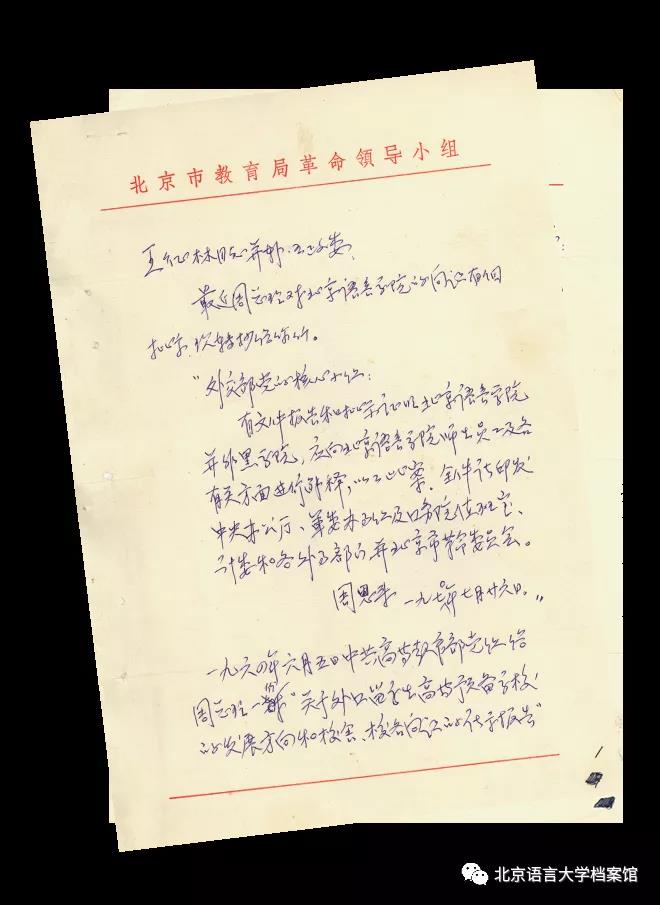 北京市教育局革命领导小组
最近周总理对北京语言学院的问题有个
批示，现转抄给你们。
“外交部党的核心小组：
有文件报告和批示证明北京语言学院
并非黑学院，应向北京语言学院师生员工及各
有关方面进行解释，以了此案。全件请印发
中央办公厅、军委办事组及国务院值班室、
计委和各外事部门并北京市革命委员会。
周恩来 一九七〇年七月廿六日。”
一九六四年六月五日中共高等教育部党组给
周总理一份“关于外国留学生高等预备学校
的发展方向和校舍、校名问题的请示报告”
北京语言大学档案馆